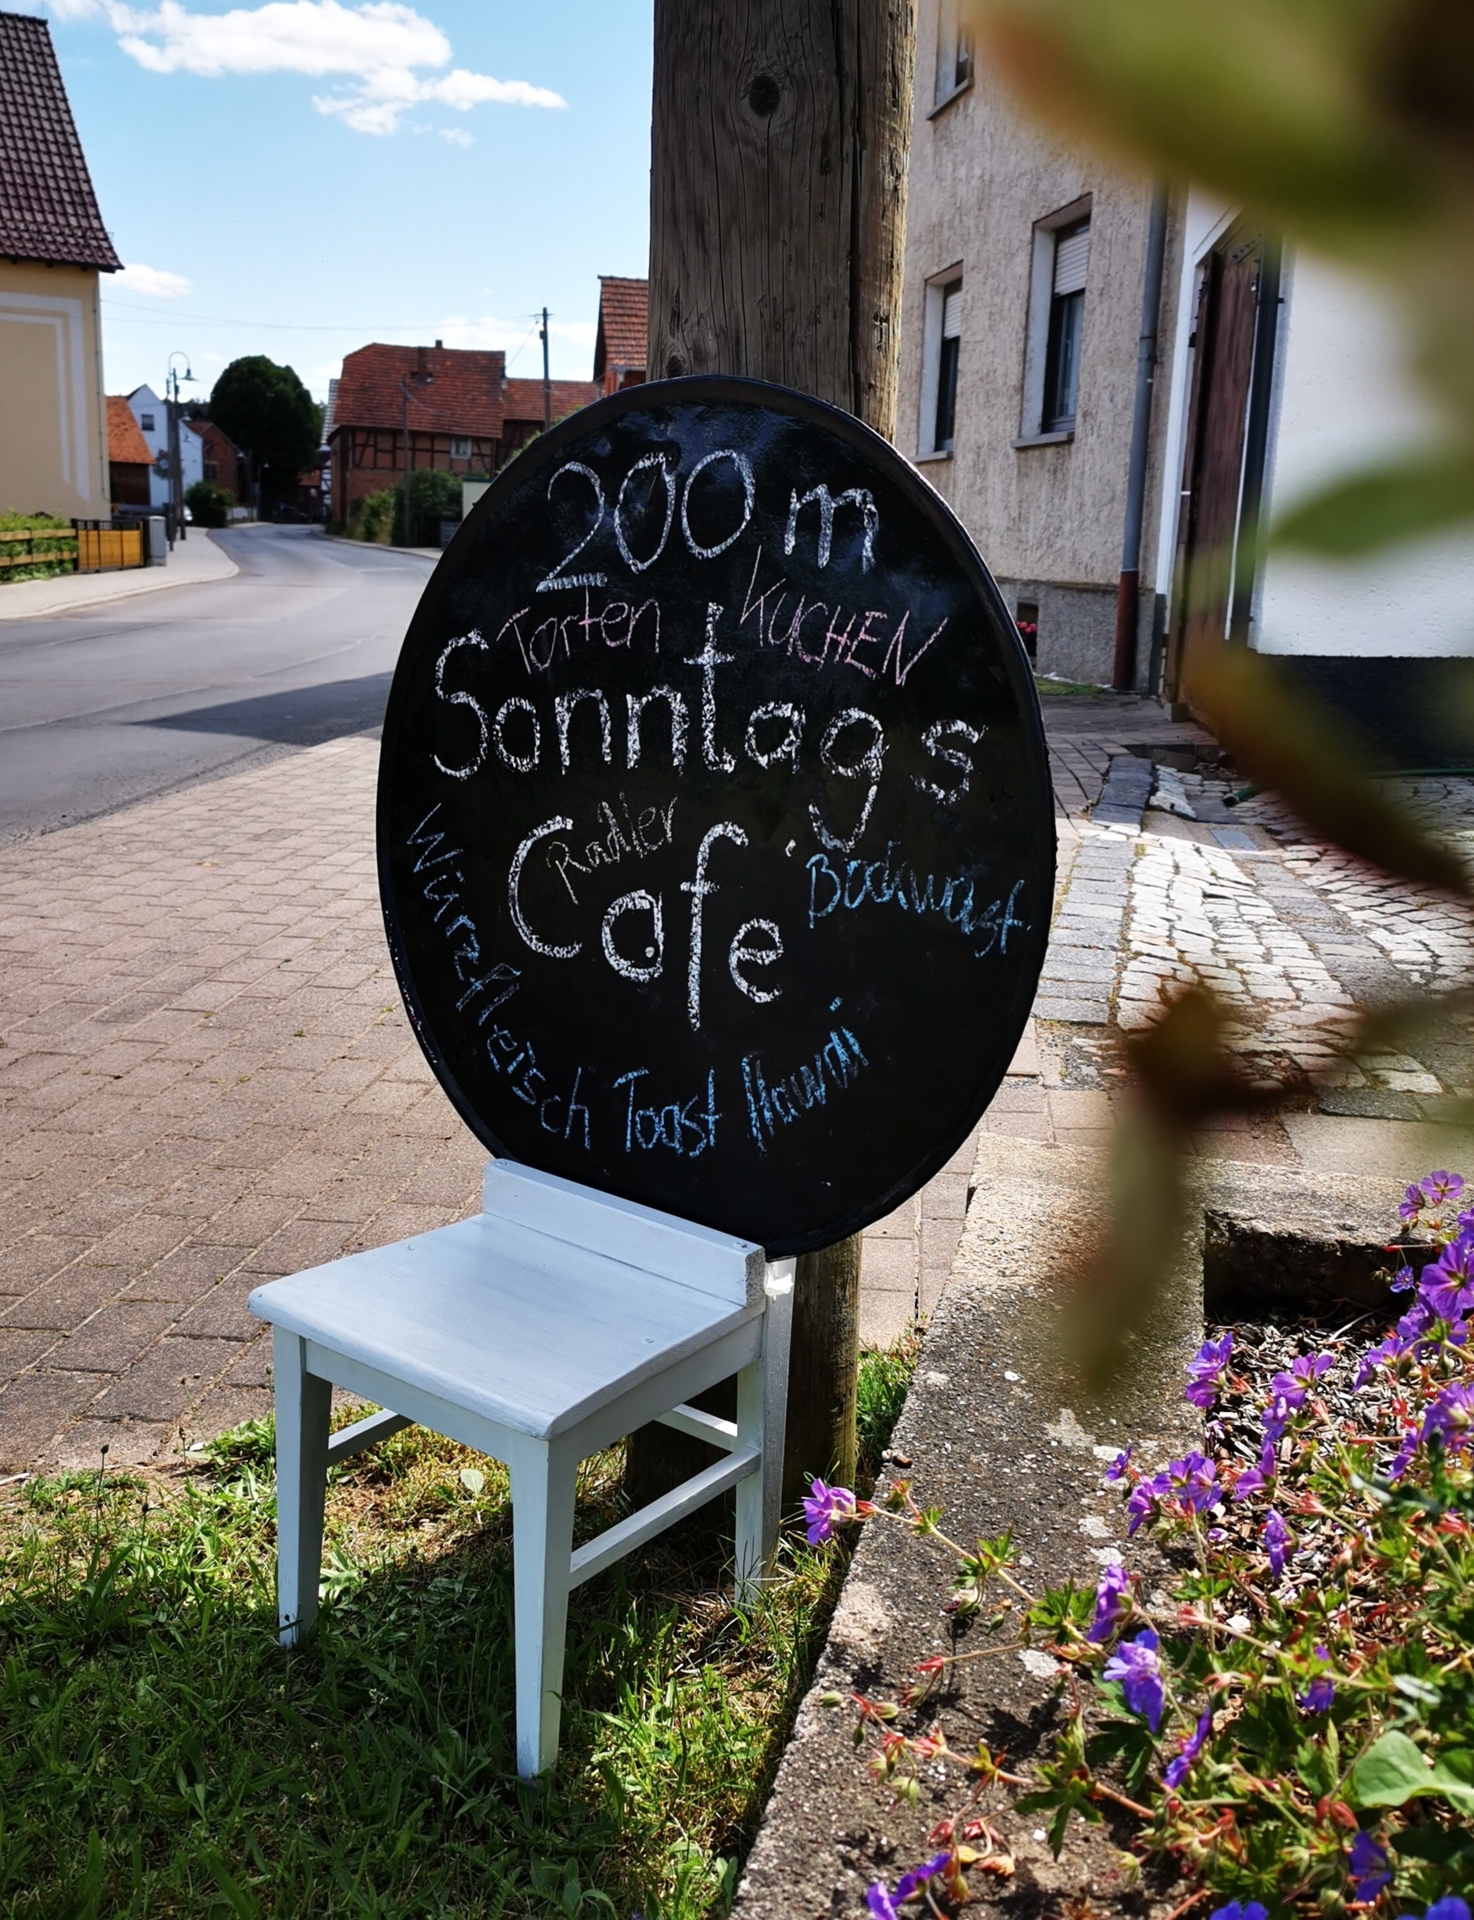 200 m
Torten KUCHEN
Sonntags
Radler
Cafe
Bockwurst
Würzfleisch Toast Hawaii